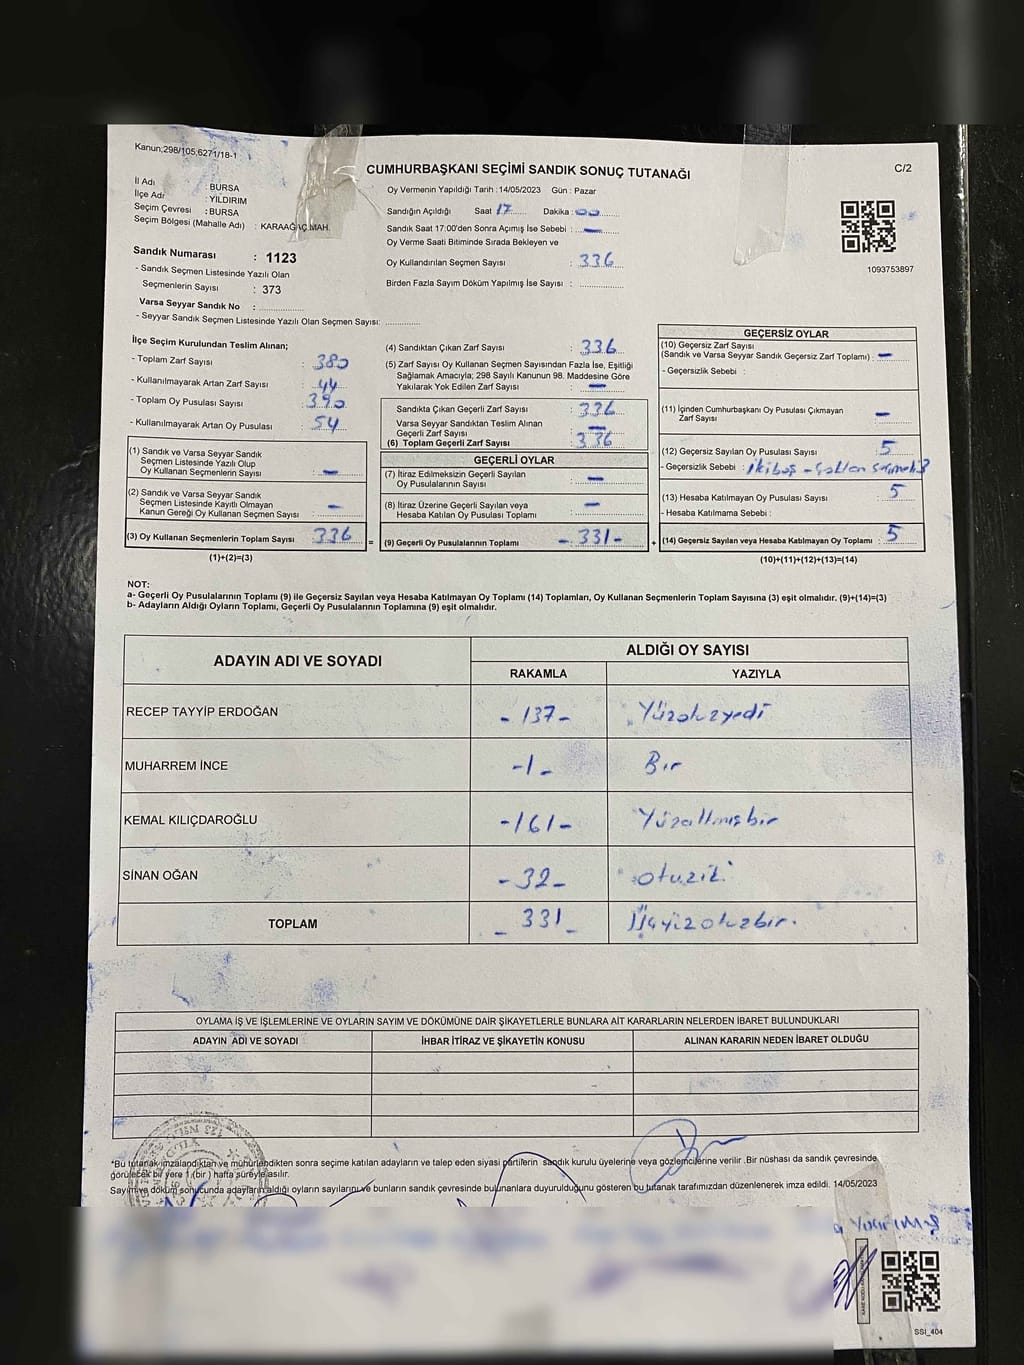 Kanun;298/105;6271/18-1
CUMHURBAŞKANI SEÇİMİ SANDIK SONUÇ TUTANAĞI
C/2
İl Adı : BURSA
İlçe Adı : YILDIRIM
Seçim Çevresi : BURSA
Seçim Bölgesi (Mahalle Adı) : KARAAĞAÇ MAH.
Sandık Numarası : 1123
- Sandık Seçmen Listesinde Yazılı Olan
Seçmenlerin Sayısı : 373
Varsa Seyyar Sandık No :
- Seyyar Sandık Seçmen Listesinde Yazılı Olan Seçmen Sayısı:
Oy Vermenin Yapıldığı Tarih : 14/05/2023 Gün : Pazar
Sandığın Açıldığı Saat 17 Dakika : 00
Sandık Saat 17:00'den Sonra Açımış İse Sebebi : -
Oy Verme Saati Bitiminde Sırada Bekleyen ve
Oy Kullandırılan Seçmen Sayısı : 336
Birden Fazla Sayım Döküm Yapılmış İse Sayısı :
1093753897
İlçe Seçim Kurulundan Teslim Alınan;
- Toplam Zarf Sayısı : 380
- Kullanılmayarak Artan Zarf Sayısı : 44
- Toplam Oy Pusulası Sayısı : 390
- Kullanılmayarak Artan Oy Pusulası : 54
(1) Sandık ve Varsa Seyyar Sandık
Seçmen Listesinde Yazılı Olup
Oy Kullanan Seçmenlerin Sayısı : -
(2) Sandık ve Varsa Seyyar Sandık
Seçmen Listesinde Kayıtlı Olmayan
Kanun Gereği Oy Kullanan Seçmen Sayısı : -
(3) Oy Kullanan Seçmenlerin Toplam Sayısı : 336
(1)+(2)=(3)
=
(4) Sandıktan Çıkan Zarf Sayısı : 336
(5) Zarf Sayısı Oy Kullanan Seçmen Sayısından Fazla İse, Eşitliği
Sağlamak Amacıyla; 298 Sayılı Kanunun 98. Maddesine Göre
Yakılarak Yok Edilen Zarf Sayısı : -
Sandıkta Çıkan Geçerli Zarf Sayısı : 336
Varsa Seyyar Sandıktan Teslim Alınan
Geçerli Zarf Sayısı : -
(6) Toplam Geçerli Zarf Sayısı : 336
GEÇERLİ OYLAR
(7) İtiraz Edilmeksizin Geçerli Sayılan
Oy Pusulalarının Sayısı : -
(8) İtiraz Üzerine Geçerli Sayılan veya
Hesaba Katılan Oy Pusulası Toplamı : -
(9) Geçerli Oy Pusulalarının Toplamı : -331-
+
GEÇERSİZ OYLAR
(10) Geçersiz Zarf Sayısı
(Sandık ve Varsa Seyyar Sandık Geçersiz Zarf Toplamı) : -
- Geçersizlik Sebebi :
(11) İçinden Cumhurbaşkanı Oy Pusulası Çıkmayan
Zarf Sayısı : -
(12) Geçersiz Sayılan Oy Pusulası Sayısı : 5
- Geçersizlik Sebebi :
(13) Hesaba Katılmayan Oy Pusulası Sayısı : 5
- Hesaba Katılmama Sebebi :
(14) Geçersiz Sayılan veya Hesaba Katılmayan Oy Toplamı : 5
(10)+(11)+(12)+(13)=(14)
NOT:
a- Geçerli Oy Pusulalarının Toplamı (9) ile Geçersiz Sayılan veya Hesaba Katılmayan Oy Toplamı (14) Toplamları, Oy Kullanan Seçmenlerin Toplam Sayısına (3) eşit olmalıdır. (9)+(14)=(3)
b- Adayların Aldığı Oyların Toplamı, Geçerli Oy Pusulalarının Toplamına (9) eşit olmalıdır.
ADAYIN ADI VE SOYADI
ALDIĞI OY SAYISI
RAKAMLA YAZIYLA
RECEP TAYYİP ERDOĞAN -137- Yüzotuzyedi
MUHARREM İNCE -1- Bir
KEMAL KILIÇDAROĞLU -161- Yüzaltmışbir
SİNAN OĞAN -32- otuziki
TOPLAM - 331 - Üçyüzotuzbir.
OYLAMA İŞ VE İŞLEMLERİNE VE OYLARIN SAYIM VE DÖKÜMÜNE DAİR ŞİKAYETLERLE BUNLARA AİT KARARLARIN NELERDEN İBARET BULUNDUKLARI
ADAYIN ADI VE SOYADI İHBAR İTİRAZ VE ŞİKAYETİN KONUSU ALINAN KARARIN NEDEN İBARET OLDUĞU
*Bu tutanak imzalandıktan ve mühürlendikten sonra seçime katılan adayların ve talep eden siyasi partilerin sandık kurulu üyelerine veya gözlemcilerine verilir .Bir nüshası da sandık çevresinde
görülecek bir yere 1 (bir ) hafta süreyle asılır.
Sayım ve döküm sonucunda adayların aldığı oyların sayılarını ve bunların sandık çevresinde bulunanlara duyurulduğunu gösteren bu tutanak tarafımızdan düzenlenerek imza edildi. 14/05/2023
SSI_404